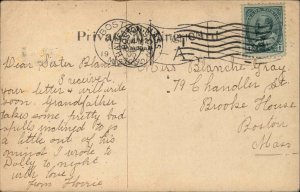 Private Mailing Card
BOSTON, MASS.
19
Dear Sister Blanche
I received
your letter & will write
soon. Grandfather
takes some pretty bad
spells inclined to go
a little out of his
mind I wrote to
Dolly to night
with love
from Florrie
Miss Blanche Gray
79 Chandler St
Brooke House
Boston
Mass